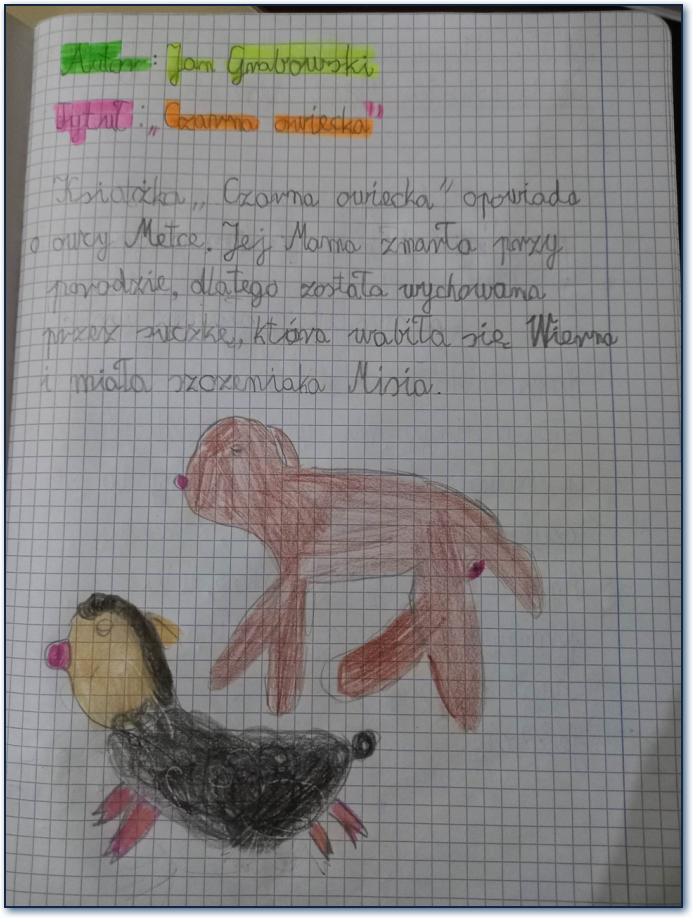 Autor: Jan Grabowski
Tytuł: „Czarna owiecka"
Ksiażka „Czarna owiecka" opowiada
o owcy Metce. Jej Mama zmarła przy
porodzie, dlatego została wychowana
przez suczkę, która wabiła się Wierna
i miała szczeniaka Misia.